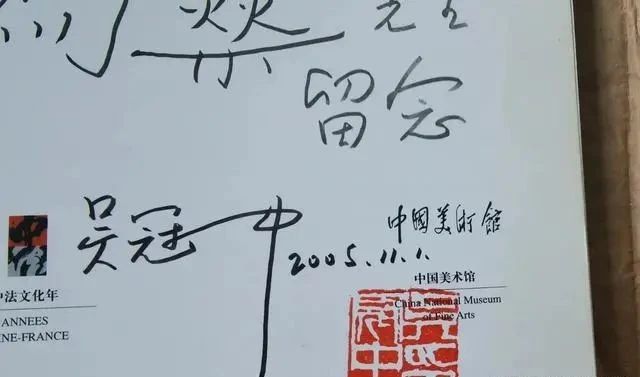 樊 先生
留念
吴冠中
2005.11.1.
中國美術館
中国美术馆
China National Museum
of Fine Arts
中法文化年
ANNEES
INE-FRANCE